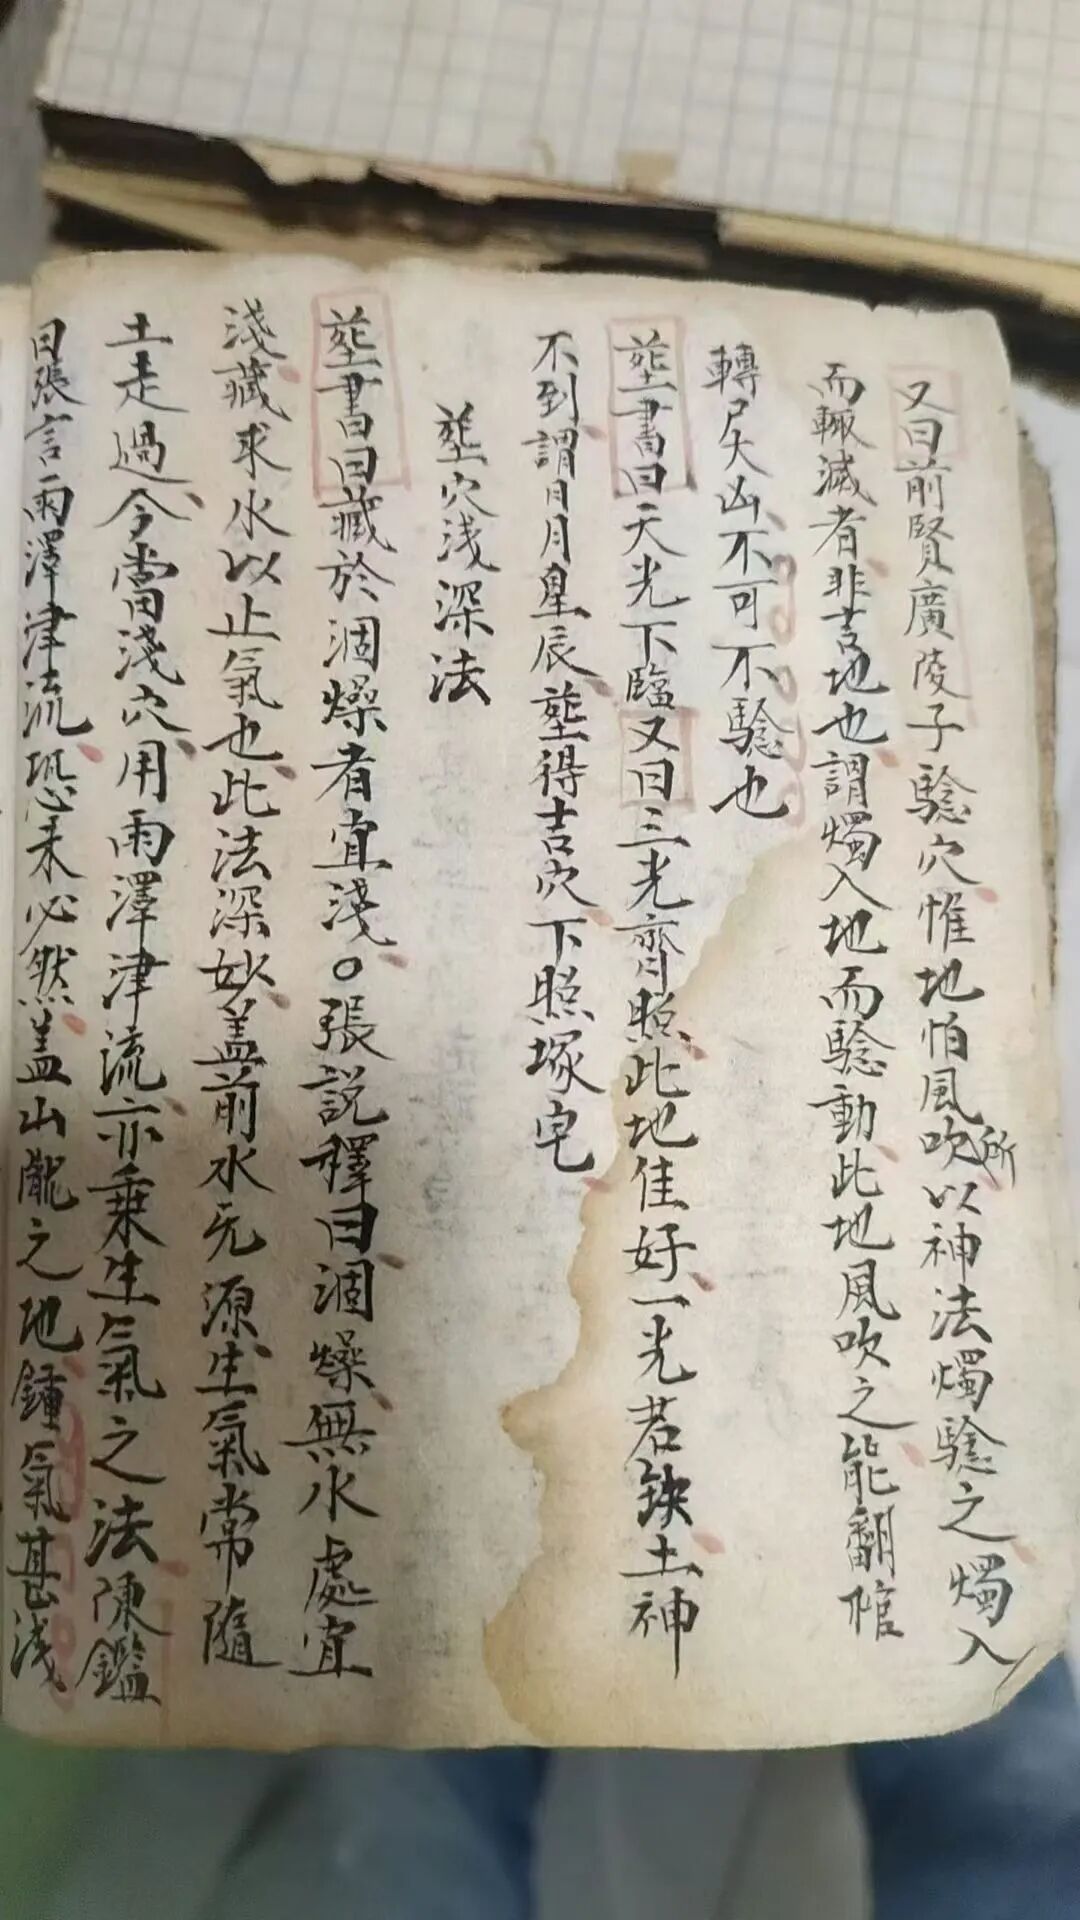 又曰前賢廣陵子騐穴惟地怕風吹所以神法燭騐之燭入
而輙滅者非吉地也謂燭入地而騐動此地風吹之能翻棺
轉尸大凶不可不騐也
塟書曰天光下臨又曰三光齊照此地佳好一光若鈌土神
不到謂日月星辰塟得吉穴下照塚宅
塟穴浅深法
塟書曰藏於涸燥者宜淺○張説釋曰涸燥無水處宜
淺藏求水以止氣也此法深妙盖前水元源生氣常隨
土走過今當淺穴用雨澤津流亦乗生氣之法陳鑑
曰張言雨澤津流恐未必然盖山龍之地鍾氣甚浅